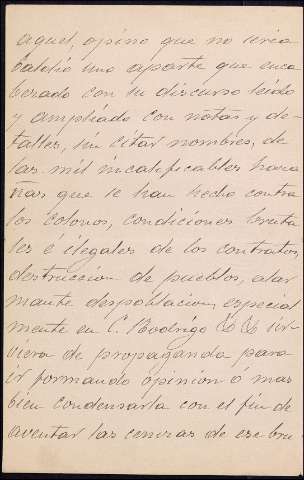 aquel, opino que no sería
baldío uno aparte que enca
bezado con su discurso leido
y ampliado con notas y de-
talles, sin citar nombres, de
las mil incalificables haza
ñas que se han hecho contra
los colonos, condiciones bruta
les é ilegales de los contratos,
destruccion de pueblos, alar
mante despoblacion, especial
mente en C. Rodrigo &. &. sir-
viera de propaganda para
ir formando opinion ó mas
bien condensarla con el fin de
aventar las cenizas de ese